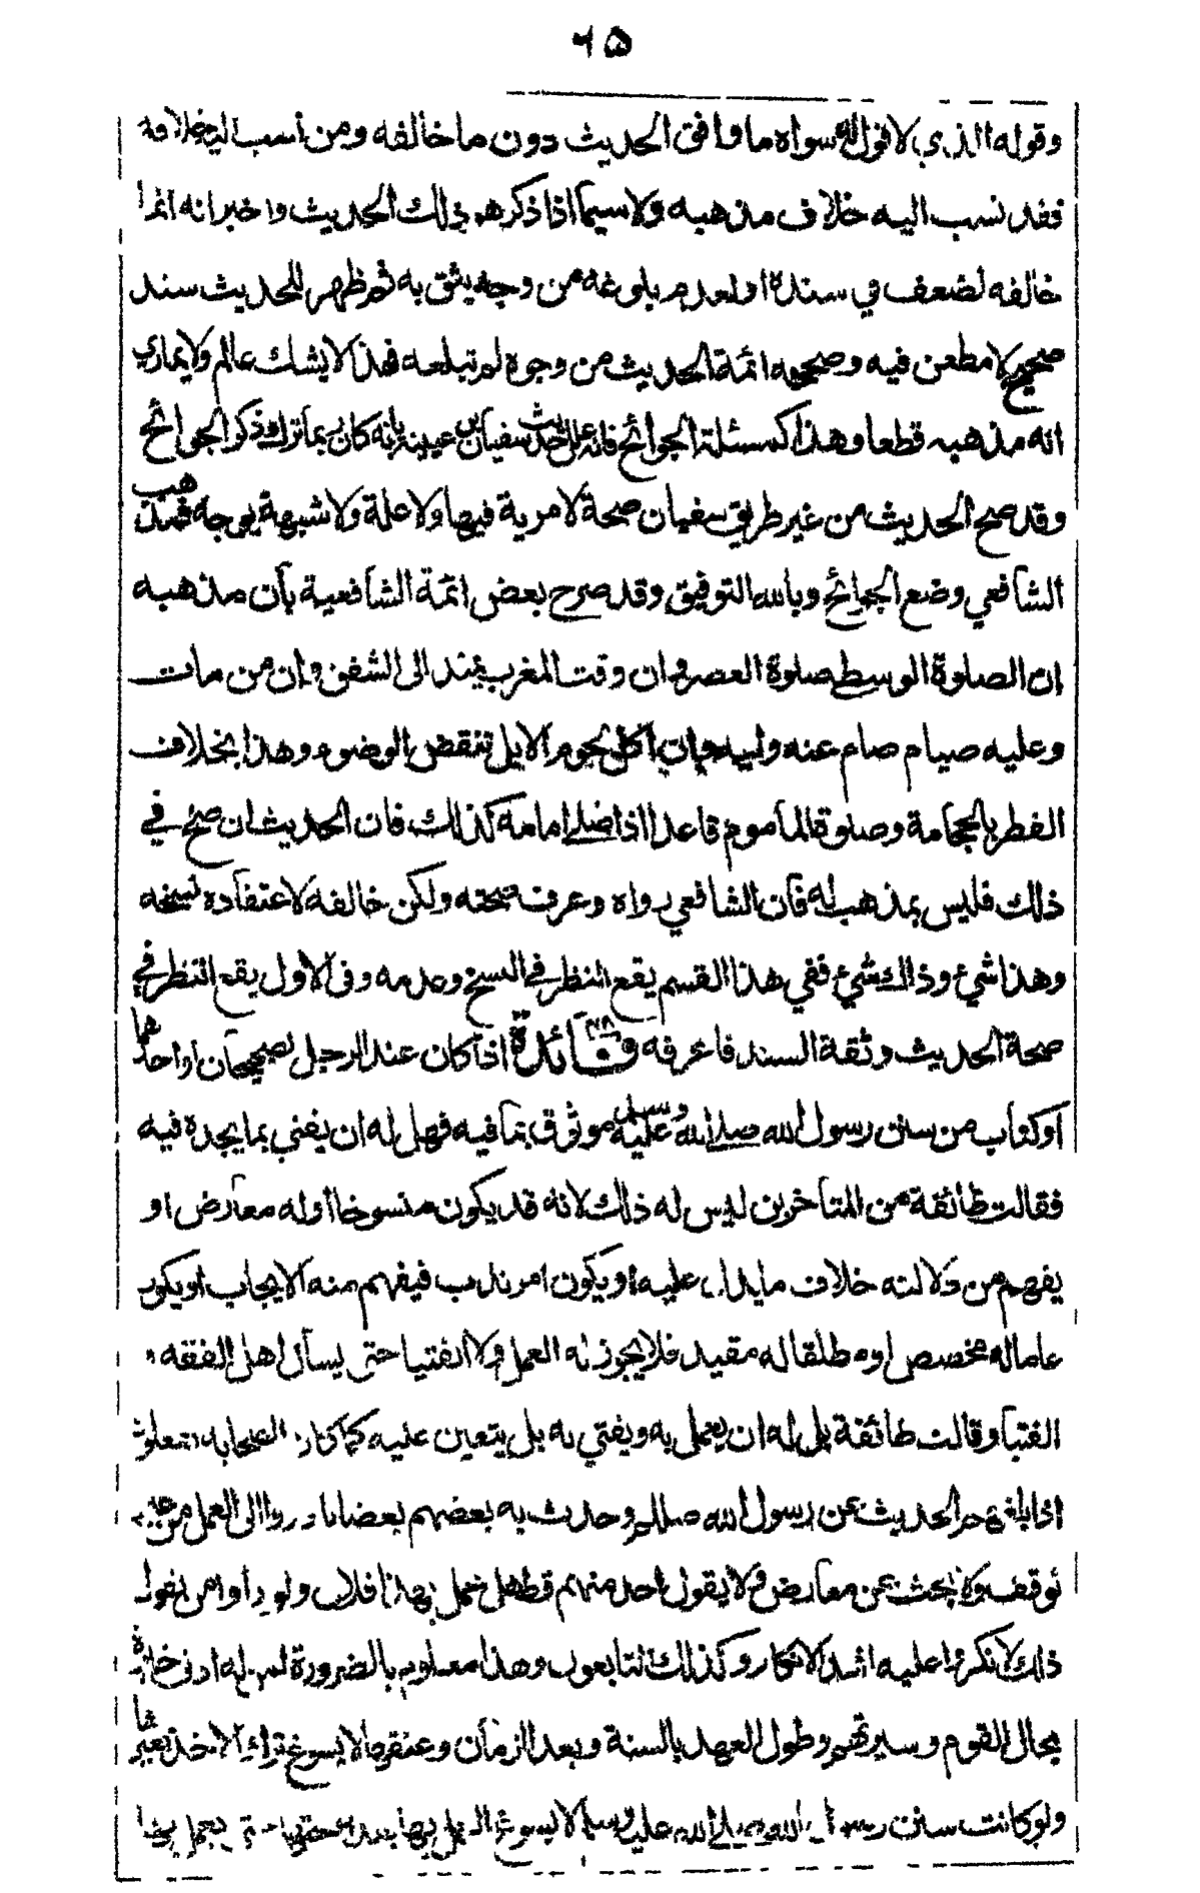 ٦٥
وقوله الذي لا قول له سواه ما وافق الحديث دون ما خالفه ومن نسب اليه خلافه
فقد نسب اليه خلاف مذهبه ولا سيما اذا ذكر هو ذلك الحديث واخبر انه انما
خالفه لضعف في سنده او لعدم بلوغه من وجه يثق به ثم ظهر للحديث سند
صحيح لا مطعن فيه وصححه ائمة الحديث من وجوه لم تبلغه فهذا لا يشك عالم ولا يماري
انه مذهبه قطعا وهذا كمسئلة الجوائح فانه علل حديث سفيان بن عيينة بانه كان ربما ترك ذكر الجوائح
وقد صح الحديث من غير طريق سفيان صحة لا مرية فيها ولا علة ولا شبهة بوجه فمذهب
الشافعي وضع الجوائح وبالله التوفيق وقد صرح بعض ائمة الشافعية بأن مذهبه
ان الصلوة الوسطى صلوة العصر وان وقت المغرب يمتد الى الشفق وان من مات
وعليه صيام صام عنه وليه وان اكل لحوم الابل تنقض الوضوء وهذا بخلاف
الفطر بالحجامة وصلوة المأموم قاعدا اذا صلى امامه كذلك فان الحديث ان صح في
ذلك فليس بمذهب له فان الشافعي رواه وعرف صحته ولكن خالفه لاعتقاده نسخه
وهذا شيء وذاك شيء ففي هذا القسم يقع النظر في النسخ وعدمه وفي الاول يقع النظر في
صحة الحديث وثقة السند فاعرفه فائدة ٤٨ اذا كان عند الرجل الصحيحان او احدهما
او كتاب من سنن رسول الله صلى الله عليه وسلم موثوق بما فيه فهل له ان يفتي بما يجده فيه
فقالت طائفة من المتأخرين ليس له ذلك لانه قد يكون منسوخا او له معارض او
يفهم من دلالته خلاف ما يدل عليه او يكون امر ندب فيفهم منه الايجاب او يكون
عاما له مخصص او مطلقا له مقيد فلا يجوز له العمل ولا الفتيا حتى يسأل اهل الفقه و
الفتيا وقالت طائفة بل له ان يعمل به ويفتي به بل يتعين عليه كما كان الصحابة يفعلون
اذا بلغهم الحديث عن رسول الله صللم وحدث به بعضهم بعضا بادروا الى العمل من غير
توقف ولا بحث عن معارض ولا يقول احد منهم قط هل عمل بهذا فلان ولو رأوا من يقول
ذلك لانكروا عليه اشد الانكار وكذلك التابعون وهذا معلوم بالضرورة لمن له ادنى خبرة
بحال القوم وسيرتهم وطول العهد بالسنة وبعد الزمان وعتقها لا يسوغ ترك الاخذ بغيرها
ولو كانت سنن رسول الله صلى الله عليه وسلم لا يسوغ العمل بها بعد صحتها حتى يعمل بها